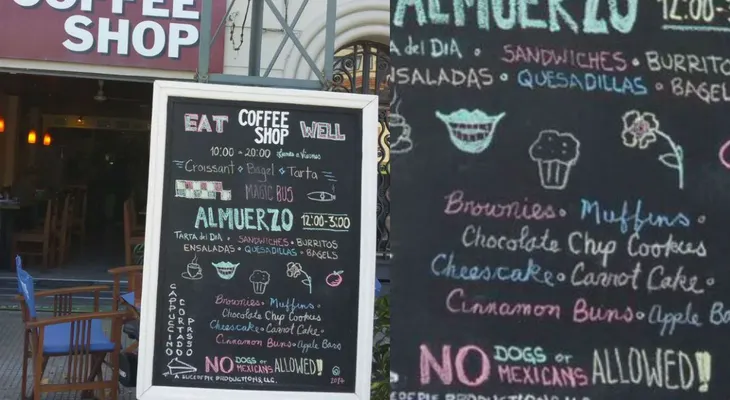 COFFEE
SHOP
EAT COFFEE SHOP WELL
10:00 - 20:00 Lunes a Viernes
Croissant Bagel Tarta
MAGIC BUS
ALMUERZO 12:00-3:00
TARTA del DIA • SANDWICHES • BURRITOS
ENSALADAS • QUESADILLAS • BAGELS
Brownies • Muffins •
Chocolate Chip Cookies
Cheescake • Carrot Cake •
Cinnamon Buns • Apple Bars
CAPPUCCINO
CORTADO
NO DOGS or MEXICANS ALLOWED!!
A SLICE OF PIE PRODUCTIONS LLC.
2014
ALMUERZO 12:00-3
A del DIA • SANDWICHES • BURRITO
NSALADAS • QUESADILLAS • BAGEL
Brownies • Muffins •
Chocolate Chip Cookies
Cheescake • Carrot Cake •
Cinnamon Buns • Apple Ba
NO DOGS or MEXICANS ALLOWED!!
OF PIE PRODUCTIONS LLC.